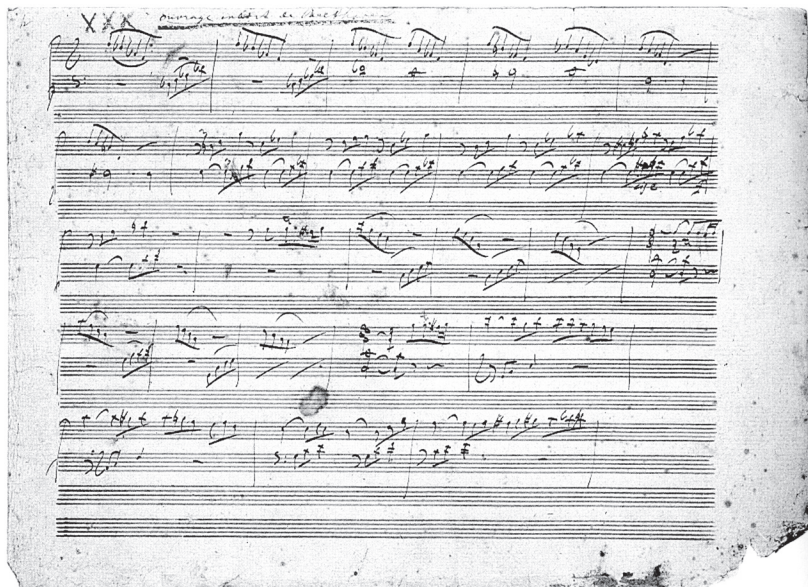 XXX ouvrage inédit de Beethoven.